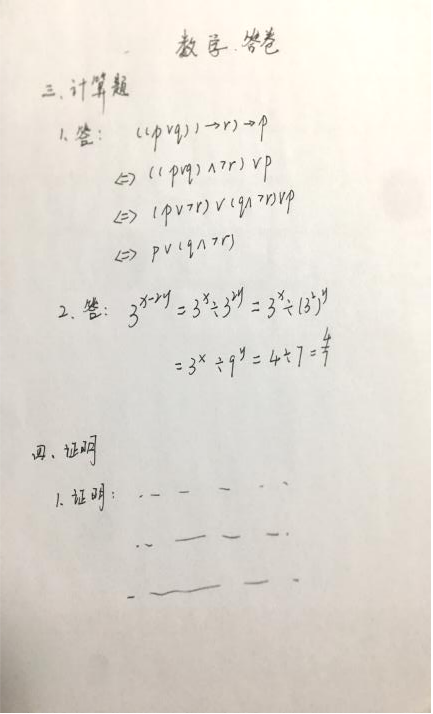 数学答卷
三、计算题
1、答: ((p∨q))→r)→p
⇔ ((p∨q)∧¬r)∨p
⇔ (p∨¬r)∨(q∧¬r)∨p
⇔ p∨(q∧¬r)
2、答: 3^{x-2y} = 3^x÷3^{2y} = 3^x÷(3^2)^y
= 3^x÷9^y = 4÷7 = 4/7
四、证明
1、证明: